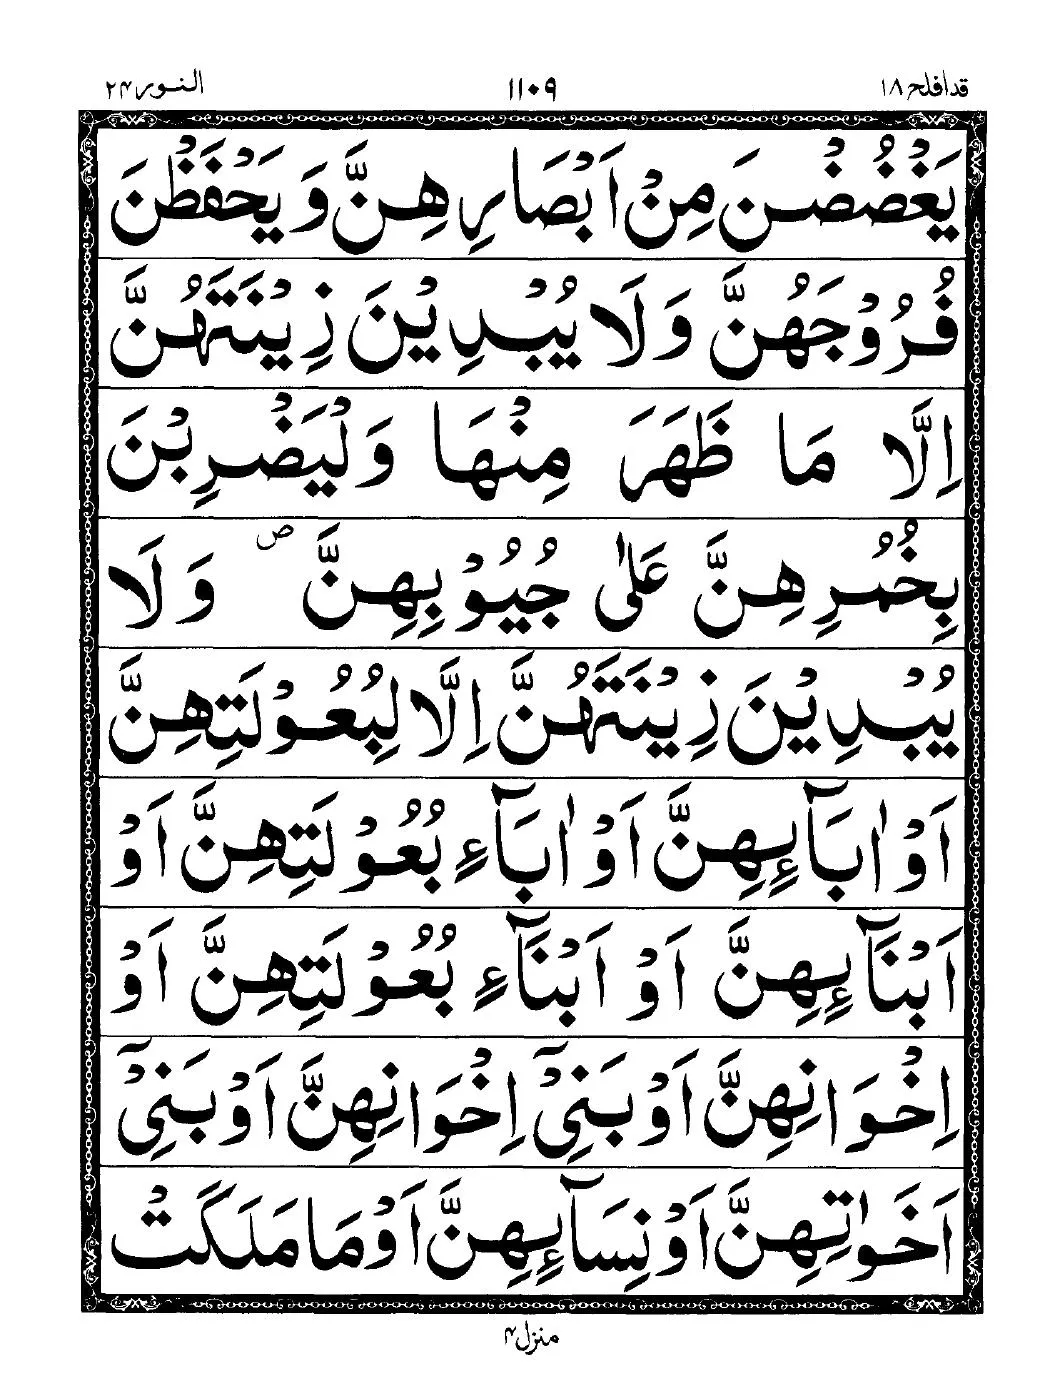 قد افلح ۱۸ ۱۱۰۹ النور ۲۴
يَغْضُضْنَ مِنْ اَبْصَارِهِنَّ وَيَحْفَظْنَ
فُرُوْجَهُنَّ وَلَا يُبْدِيْنَ زِيْنَتَهُنَّ
اِلَّا مَا ظَهَرَ مِنْهَا وَلْيَضْرِبْنَ
بِخُمُرِهِنَّ عَلٰى جُيُوْبِهِنَّ ۖ وَلَا
يُبْدِيْنَ زِيْنَتَهُنَّ اِلَّا لِبُعُوْلَتِهِنَّ
اَوْ اٰبَآءِهِنَّ اَوْ اٰبَآءِ بُعُوْلَتِهِنَّ اَوْ
اَبْنَآءِهِنَّ اَوْ اَبْنَآءِ بُعُوْلَتِهِنَّ اَوْ
اِخْوَانِهِنَّ اَوْ بَنِيْٓ اِخْوَانِهِنَّ اَوْ بَنِيْٓ
اَخَوٰتِهِنَّ اَوْ نِسَآءِهِنَّ اَوْ مَا مَلَكَتْ
منزل ۴